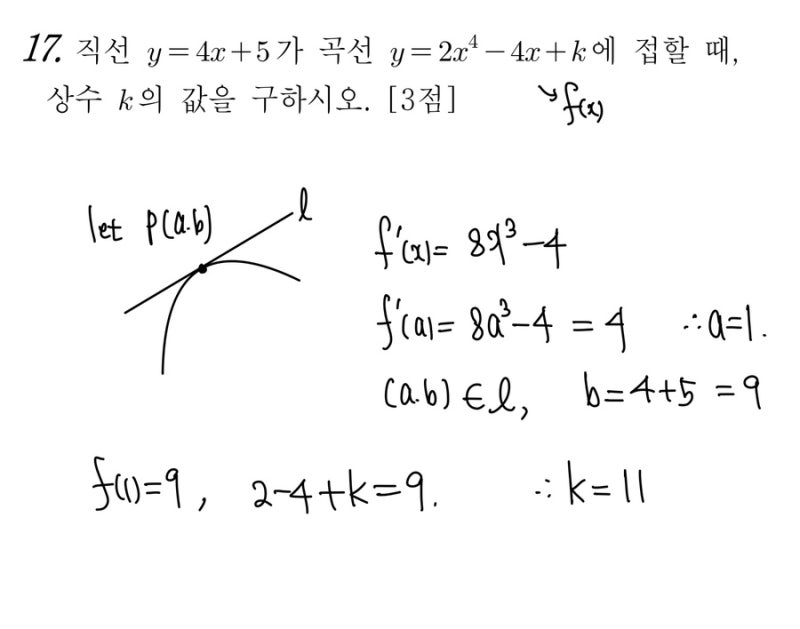 17. 직선 y=4x+5가 곡선 y=2x⁴-4x+k에 접할 때,
상수 k의 값을 구하시오. [3점]
↘f(x)
let P(a.b)
l
f'(x)= 8x³-4
f'(a)= 8a³-4 = 4 ∴a=1.
(a.b)∈l, b=4+5 =9
f(1)=9, 2-4+k=9. ∴k=11